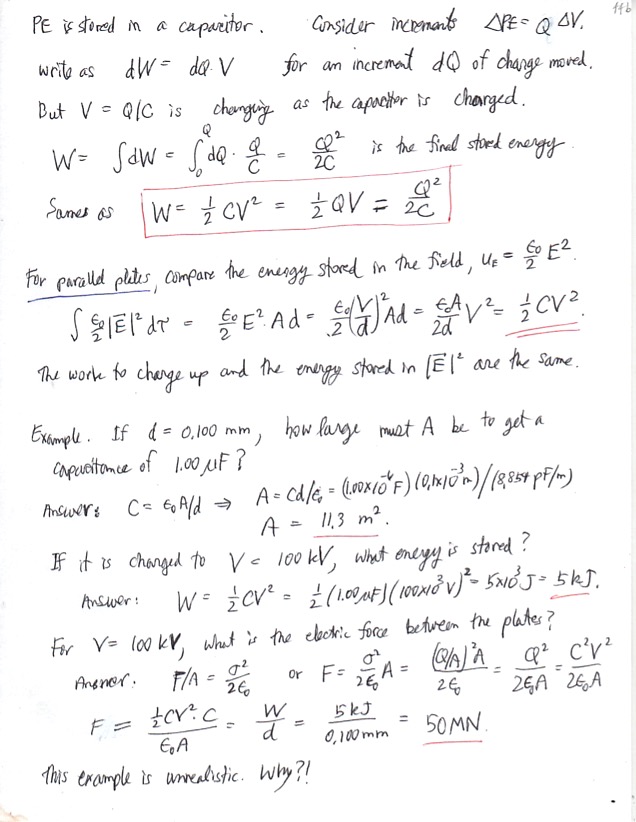 116
PE is stored in a capacitor. Consider increments ΔPE = Q ΔV.
write as dW = dQ·V for an increment dQ of charge moved.
But V = Q/C is changing as the capacitor is charged.
W = ∫dW = ∫₀^Q dQ · Q/C = Q²/2C is the final stored energy.
Same as W = ½ CV² = ½ QV = Q²/2C
For parallel plates, compare the energy stored in the field, u_E = ε₀/2 E².
∫ ε₀/2 |E⃗|² dτ = ε₀/2 E² Ad = ε₀/2 (V/d)² Ad = ε₀A/2d V² = ½ CV².
The work to charge up and the energy stored in |E⃗|² are the same.
Example. If d = 0.100 mm, how large must A be to get a
capacitance of 1.00 μF?
Answer: C = ε₀A/d ⇒ A = Cd/ε₀ = (1.00×10⁻⁶ F)(0.1×10⁻³ m)/(8.854 pF/m)
A = 11.3 m².
If it is charged to V = 100 kV, what energy is stored?
Answer: W = ½ CV² = ½ (1.00 μF)(100×10³ V)² = 5×10³ J = 5 kJ.
For V = 100 kV, what is the electric force between the plates?
Answer: F/A = σ²/2ε₀ or F = σ²/2ε₀ A = (Q/A)²A/2ε₀ = Q²/2ε₀A = C²V²/2ε₀A
F = ½CV²·C/ε₀A = W/d = 5 kJ/0.100 mm = 50 MN.
This example is unrealistic. Why?!